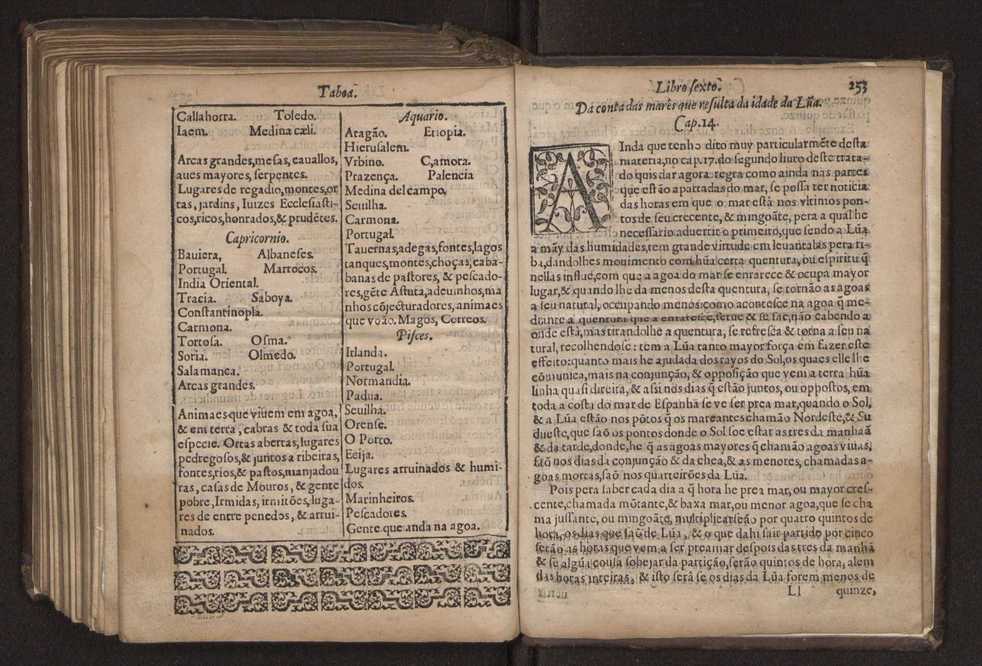 Taboa.
Callahorra. Toledo.
Iaem. Medina cæli.
Arcas grandes, mesas, cauallos,
aues mayores, serpentes.
Lugares de regadio, montes, or
tas, jardins, Iuizes Ecclesiasti-
cos, ricos, honrados, & prudẽtes.
Capricornio.
Bauiera, Albaneses.
Portugal. Marrocos.
India Oriental.
Tracia. Saboya.
Constantinopla.
Carmona.
Tortosa. Osma.
Soria. Olmedo.
Salamanca.
Arcas grandes.
Animaes que viuem em agoa,
& em terra, cabras & toda sua
especie. Ortas abertas, lugares
pedregosos, & juntos a ribeiras,
fontes, rios, & pastos, manjadou
ras, casas de Mouros, & gente
pobre, Irmidas, irmitões, luga-
res de entre penedos, & arrui-
nados.
Aquario.
Aragão. Etiopia.
Hierusalem.
Vrbino. Çamora.
Prazença. Palencia
Medina del campo,
Seuilha.
Carmona.
Portugal.
Tauernas, adegas, fontes, lagos
tanques, montes, choças, caba-
banas de pastores, & pescado-
res, gẽte Astuta, adeuinhos, ma
nhos cõjecturadores, animaes
que voão. Magos, Correos.
Pisces.
Irlanda.
Portugal.
Normandia.
Padua.
Seuilha.
Orense.
O Porto.
Ecija.
Lugares arruinados & humi-
dos.
Marinheiros.
Pescadores.
Gente que anda na agoa.
Libro sexto. 253
Da conta das marès que resulta da idade da Lũa.
Cap. 14.
AInda que tenho dito muy particularmẽte desta
materia, no cap. 17. do segundo liuro deste trata-
do quis dar agora regra como ainda nas partes
que estão apartadas do mar, se possa ter noticia
das horas em que o mar està nos vltimos pon-
tos de seu crecente, & mingoãte, pera a qual he
necessario aduertir o primeiro, que sendo a Lũa
a mãy das humidades, tem grande virtude em leuantalas pera ri-
ba, dandolhes mouimento com hũa certa quentura, ou espiritu q̃
nellas influe, com que a agoa do mar se enrarece & ocupa mayor
lugar, & quando lhe da menos desta quentura, se tornão as agoas
a seu natural, occupando menos: como acontece na agoa q̃ me-
diante a quentura que a enrarece, ferue & se sae, não cabendo a
onde està, mas tirandolhe a quentura, se refresca & torna a seu na
tural, recolhendose: tem a Lũa tanto mayor força em fazer este
effeito: quanto mais he ajudada dos rayos do Sol, os quaes elle lhe
cõmunica, mais na conjunção, & opposição que vem a ter na hũa
linha quasi direita, & assi nos dias q̃ estão juntos, ou oppostos, em
toda a costa do mar de Espanha se ve ser prea mar, quando o Sol,
& a Lũa estão nos põtos q̃ os mareantes chamão Nordeste, & Su
dueste, que saõ os pontos donde o Sol soe estar as tres da manhaã
& da tarde, donde, he q̃ as agoas mayores q̃ chamão agoas viuas,
saõ nos dias da conjunção & da chea, & as menores, chamadas a-
goas mortas, saõ nos quarteirões da Lũa.
Pois pera saber cada dia a q̃ hora he prea mar, ou mayor cres-
cente, chamada mõtante, & baxa mar, ou menor agoa, que se cha
ma jussante, ou mingoãte, multiplicarseão por quatro quintos de
hora, os dias que saõ de Lũa, & o que dahi sair partido por cinco
serão as horas que vem a ser preamar despois das tres da manhã
& se algũa cousa sobejar da partição, serão quintos de hora, alem
das horas inteiras, & isto serà se os dias da Lũa forem menos de
Ll quinze,